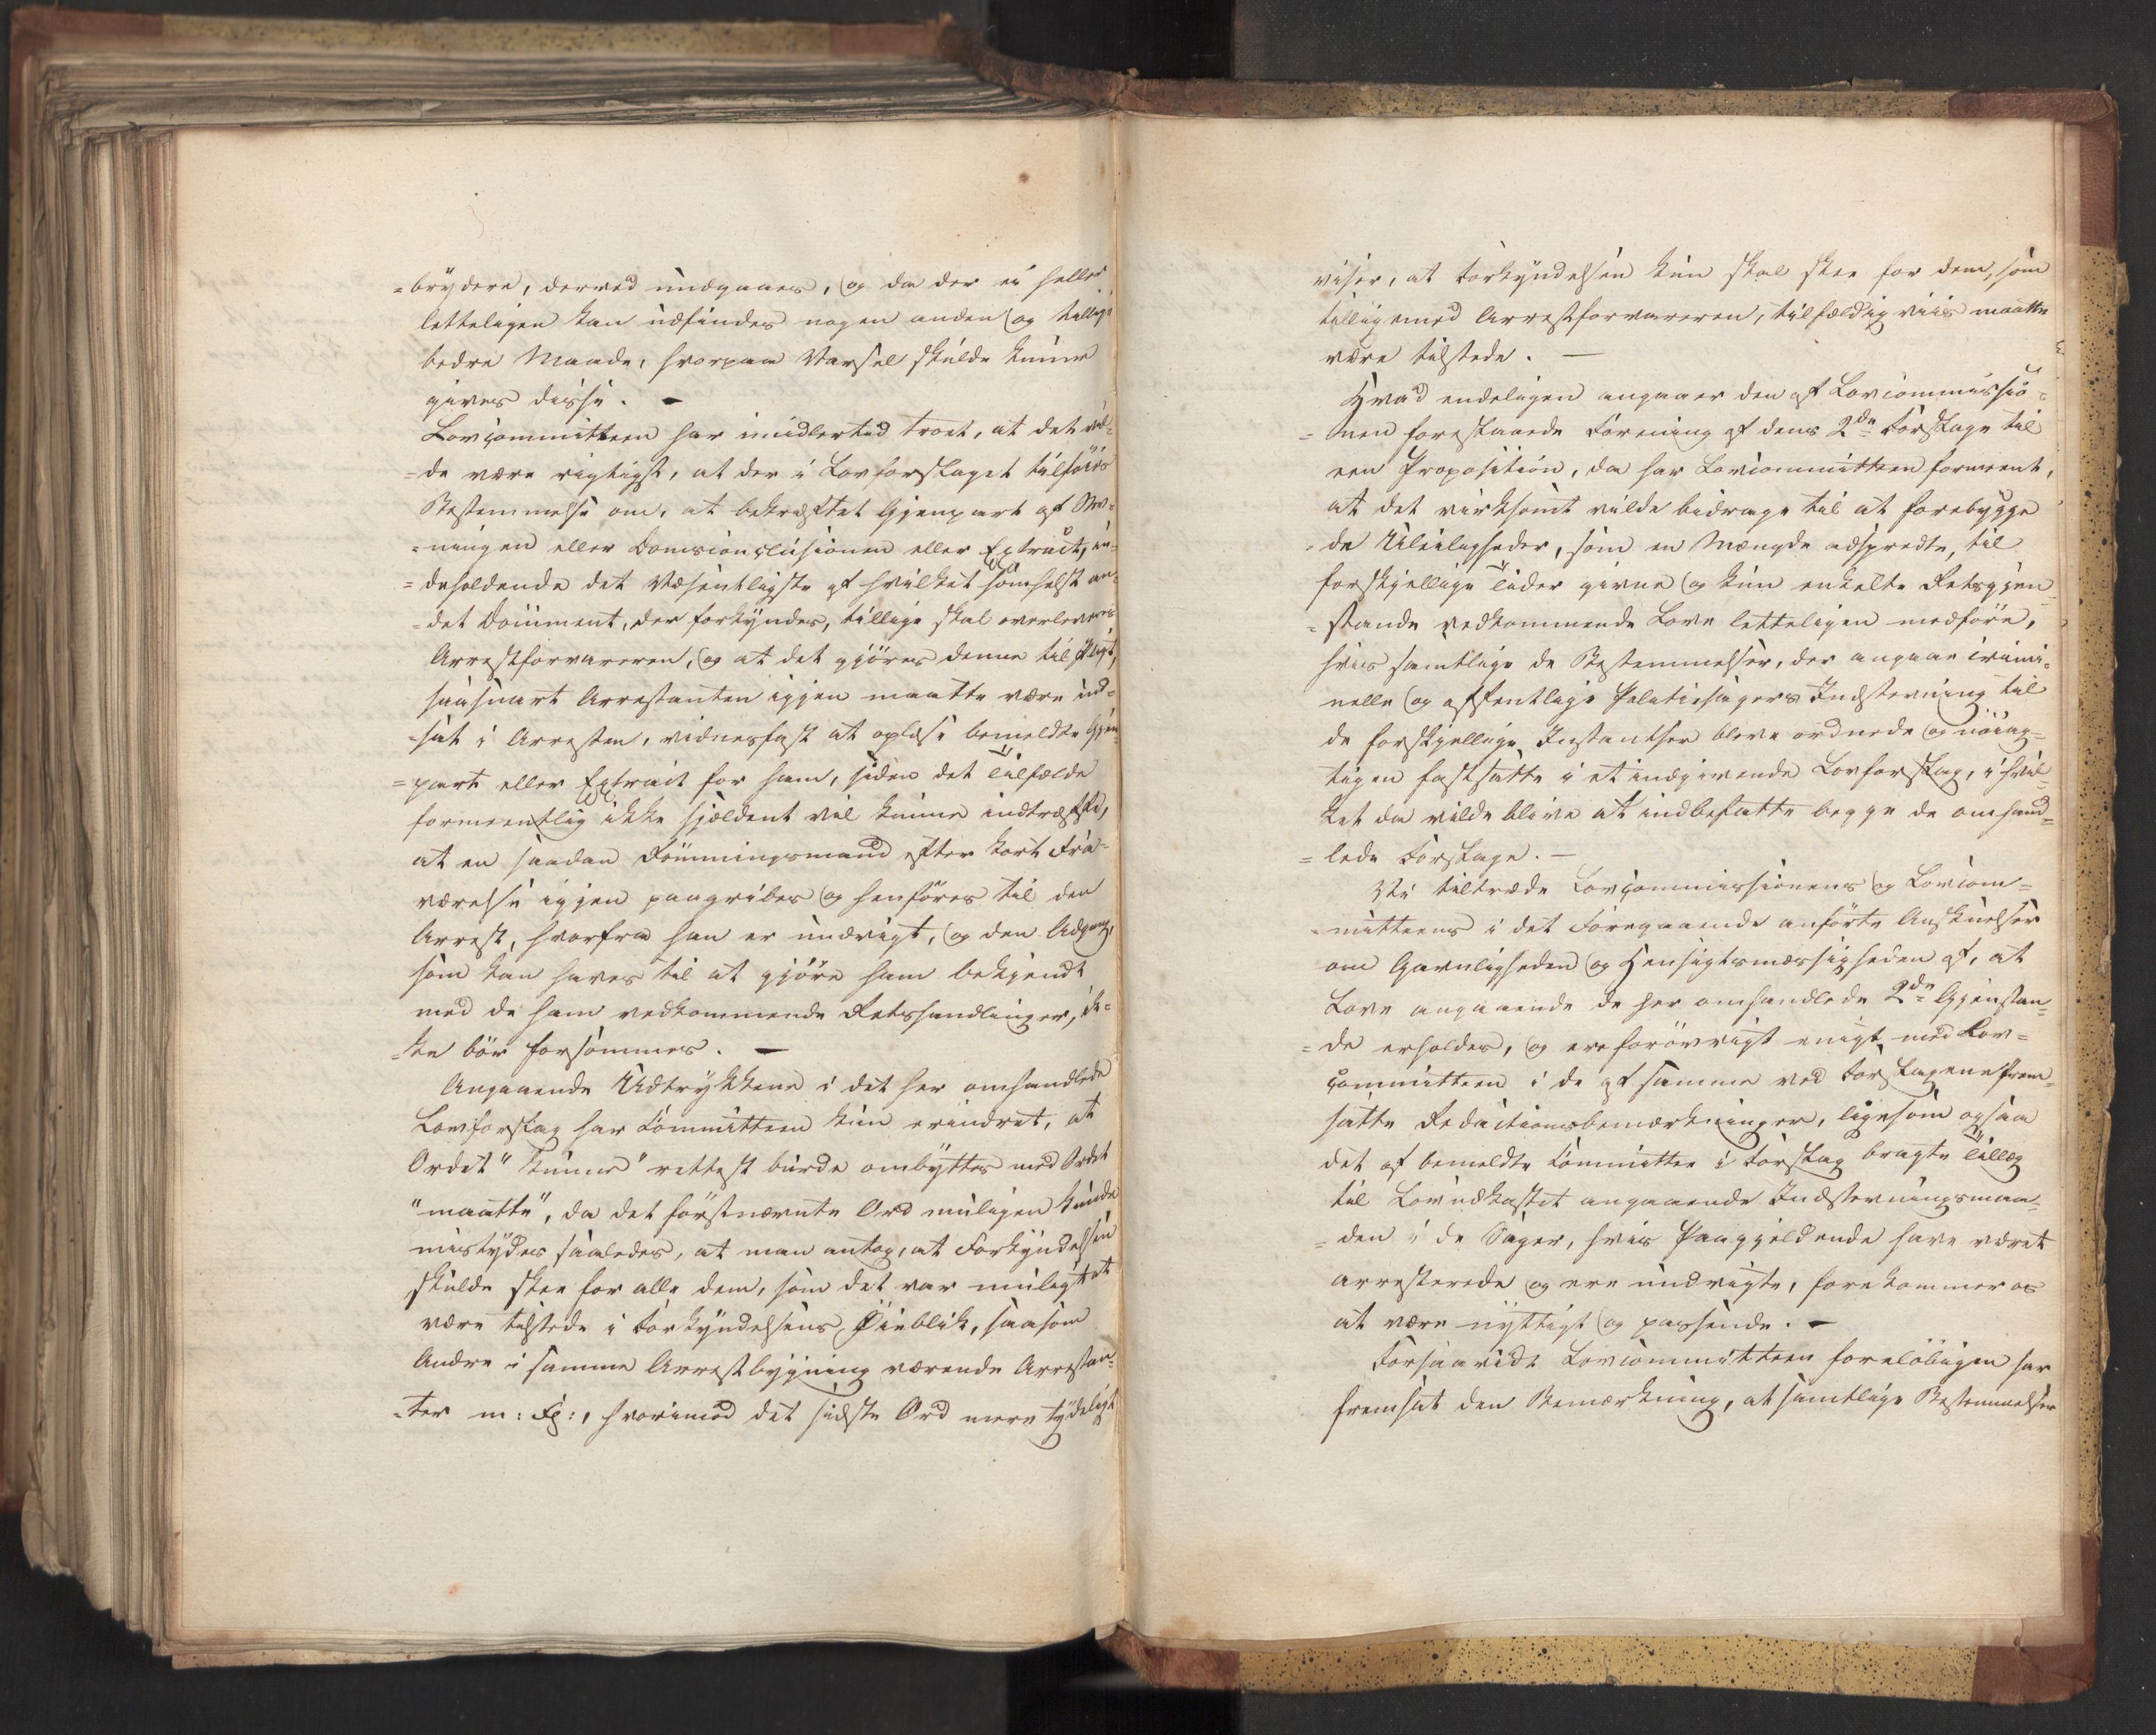 =brydere, derved undgaaes, og da der ei heller
letteligen kan udfindes nogen anden og tillige
bedre Maade, hvorpaa Varsel skulde kunne
gives disse. -
Lovcommitteen har imidlertid troet, at det vil-
=de være rigtigst, at der i Lovforslaget tilföies
Bestemmelse om, at bekræftet Gjenpart af Stev-
=ningen eller Domsconclusionen eller Extract, in-
=deholdende det Væsentligste af hvilket somhelst an-
=det Document, der forkyndes, tillige skal overleveres
Arrestforvareren, og at det gjöres denne til Pligt,
saasnart Arrestanten igjen maatte være ind-
=sat i Arresten, vidnesfast at oplæse bemeldte Gjen-
=part eller Extract for ham, siden det Tilfælde
formeentlig ikke sjeldent vil kunne indtræffe,
at en saadan Römningsmand efter kort Fra-
værelse igjen paagribes og henföres til den
Arrest, hvorfra han er undvigt, og den Adgang,
som kan haves til at gjöre ham bekjendt
med de ham vedkommende Retshandlinger, ik-
=ke bör forsömmes. -
Angaaende Udtrykkene i det her omhandlede
Lovforslag har Committeen kun erindret, at
Ordet "kunne" rettest burde ombyttes med Ordet
"maatte", da det förstnævnte Ord muligen kunde
mistydes saaledes, at man antog, at Forkyndelsen
skulde skee for alle dem, som det var muligt at
være tilstede i Forkyndelsens Øieblik, saasom
Andre i samme Arrestbygning værende Arrestan-
=ter m: Fl:, hvorimod det sidste Ord mere tydeligt
viser, at Forkyndelsen kun skal skee for dem, som
tilligemed Arrestforvareren, tilfældigviis maatte
være tilstede. -
Hvad endeligen angaaer den af Lovcommissio-
=nen foreslaaede Forening af dens 2de Forslage til
een Proposition, da har Lovcommitteen formeent,
at det virksomt vilde bidrage til at forebygge
de Uleiligheder, som en Mængde adspredte, til
forskjellige Tider givne og kun enkelte Retsgjen-
=stande vedkommende Love letteligen medföre,
hvis samtlige de Bestemmelser, der angaae crimi-
nelle og offentlige Politiesagers Indstevning til
de forskjellige Instantser bleve ordnede og nöiag-
tigen fastsatte i et indgivende Lovforslag, i hvil-
ket da vilde blive at indbefatte begge de omhand-
=lede Forslage. -
Vi tiltræde Lovcommissionens og Lovcom-
=mitteens i det Foregaaende anförte Anskuelser
om Gavnligheden og Hensigtsmæssigheden af, at
Love angaaende de her omhandlede 2de Gjenstan-
=de erholdes, og ere forövrigt enige med Lov-
committeen i de af samme ved Forslagene frem-
satte Redactionsbemærkninger, ligesom ogsaa
det af bemeldte Committee i Forslag bragte Tillæg
til Lovudkastet angaaende Indstevningsmaa-
=den i de Sager, hvis Paagjeldende have været
arresterede og ere undvigte, forekommer os
at være nyttigt og passende. -
Forsaavidt Lovcommitteen foreløbigen har
fremsat den Bemærkning, at samtlige Bestemmelser